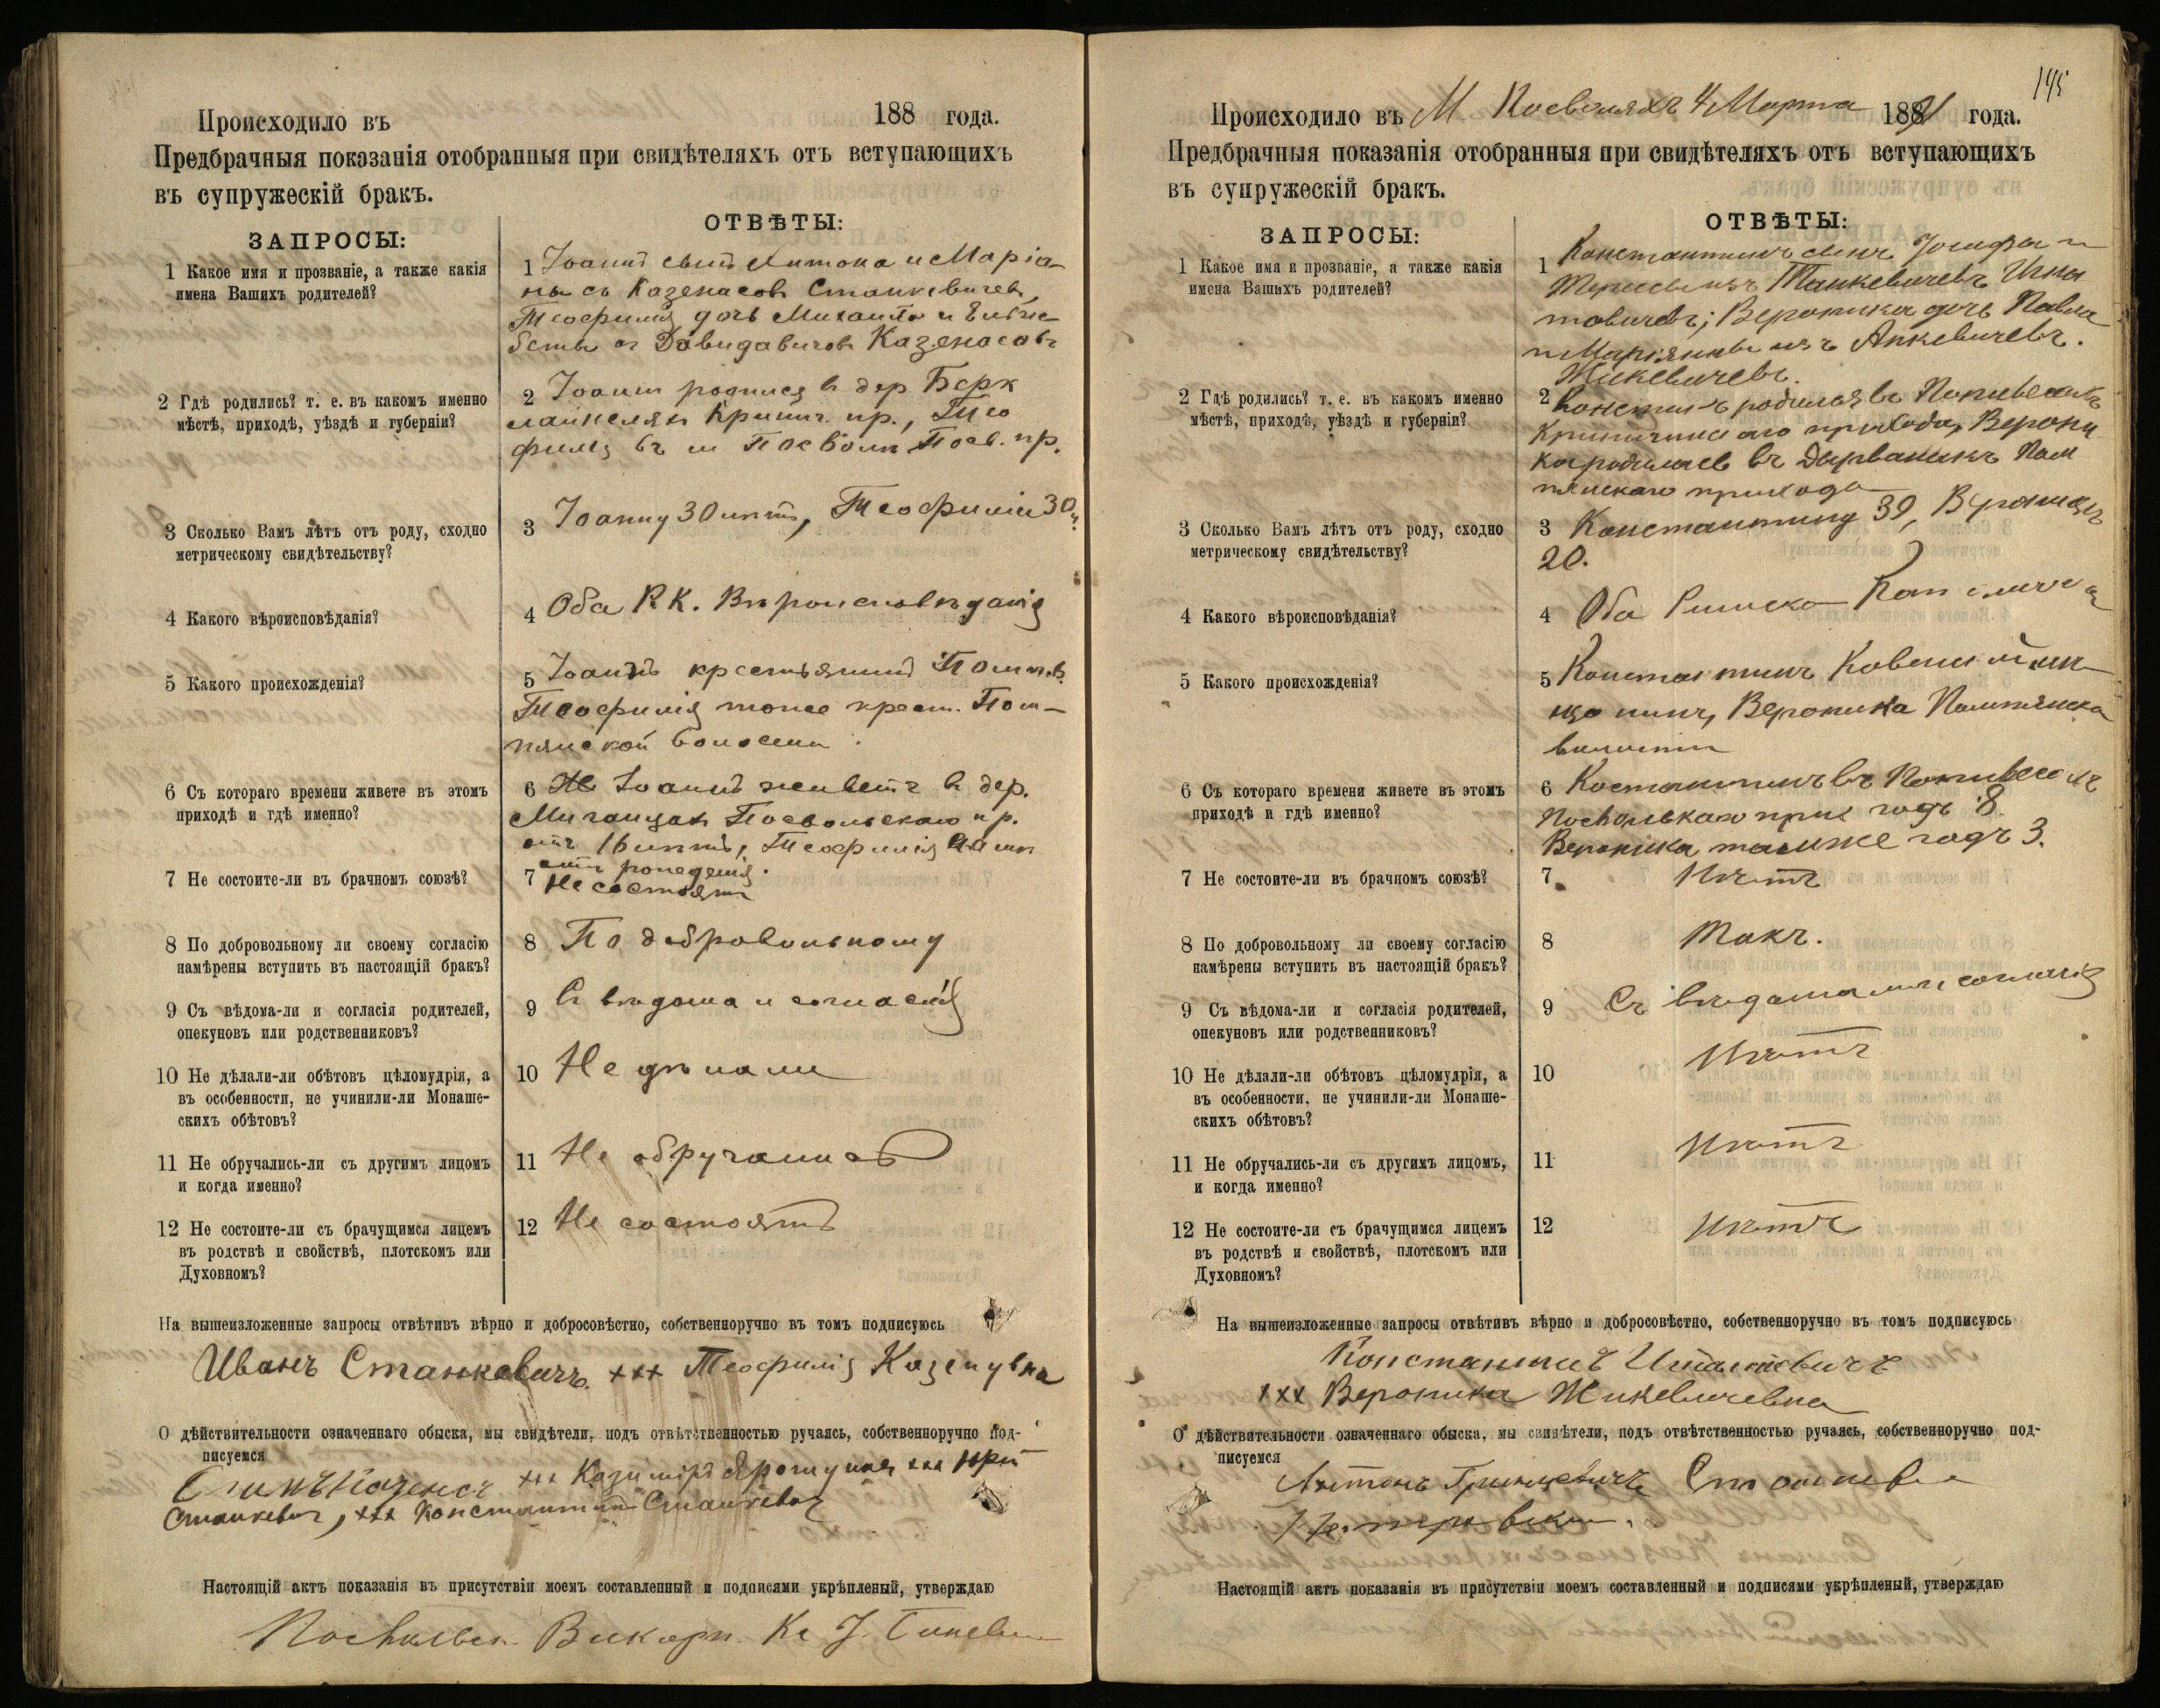 Происходило въ 188 года.
Предбрачныя показанія отобранныя при свидѣтеляхъ отъ вступающихъ
въ супружескій бракъ.
ЗАПРОСЫ:
ОТВѢТЫ:
1 Какое имя и прозваніе, а также какія
имена Вашихъ родителей?
1 Іоаннъ сынъ Антона и Маріа-
ны съ Казенасовъ Станкевичевъ,
Теофилія дочь Михаила и Елиза-
беты съ Давидавичовъ Казенасовъ
2 Гдѣ родились? т. е. въ какомъ именно
мѣстѣ, приходѣ, уѣздѣ и губерніи?
2 Іоаннъ родился въ дер.
пр., Тео
филія въ м Посволѣ Посв. пр.
3 Сколько Вамъ лѣтъ отъ роду, сходно
метрическому свидѣтельству?
3 Іоанну 30 лѣтъ, Теофиліи 30 л.
4 Какого вѣроисповѣданія?
4 Оба Р. К. Вѣроисповѣданія
5 Какого происхожденія?
5 Іоаннъ крестьянинъ
Теофилія тоже крест. Пом-
пянской волости.
6 Съ котораго времени живете въ этомъ
приходѣ и гдѣ именно?
6 Іоаннъ живетъ въ дер.
Посвольскаго пр.
отъ 16 лѣтъ, Теофилія
отъ рожденія.
7 Не состоите-ли въ брачномъ союзѣ?
7 Не состоятъ
8 По добровольному ли своему согласію
намѣрены вступить въ настоящій бракъ?
8 По добровольному
9 Съ вѣдома-ли и согласія родителей,
опекуновъ или родственниковъ?
9 Съ вѣдома и согласія
10 Не дѣлали-ли обѣтовъ цѣломудрія, а
въ особенности, не учинили-ли Монаше-
скихъ обѣтовъ?
10 Не дѣлали
11 Не обручались-ли съ другимъ лицомъ
и когда именно?
11 Не обручались
12 Не состоите-ли съ брачущимся лицемъ
въ родствѣ и свойствѣ, плотскомъ или
Духовномъ?
12 Не состоятъ
На вышеизложенные запросы отвѣтивъ вѣрно и добросовѣстно, собственноручно въ томъ подписуюсь
Иванъ Станкевичъ. +++ Теофилія Казенувна
О дѣйствительности означеннаго обыска, мы свидѣтели, подъ отвѣтственностью ручаясь, собственноручно под-
писуемся
+++ Казиміръ +++ Юрій
Станкевич, +++ Константинъ Станкевич
Настоящій актъ показанія въ присутствіи моемъ составленный и подписями укрѣпленый, утверждаю
Викарн. Кс.
145
Происходило въ М. Посволяхъ 4 Марта 188 года.
Предбрачныя показанія отобранныя при свидѣтеляхъ отъ вступающихъ
въ супружескій бракъ.
ЗАПРОСЫ:
ОТВѢТЫ:
1 Какое имя и прозваніе, а также какія
имена Вашихъ родителей?
1 Константинъ сынъ Іосифа и
изъ Танкевичевъ Игна
товичевъ; Вероника дочь Павла
и Маріянны изъ Анкевичевъ.
Жикевичевъ.
2 Гдѣ родились? т. е. въ какомъ именно
мѣстѣ, приходѣ, уѣздѣ и губерніи?
2 родился въ
прихода, Верони
ка родилась въ Пом
пянскаго прихода
3 Сколько Вамъ лѣтъ отъ роду, сходно
метрическому свидѣтельству?
3 Константину 39, Вероникѣ
20.
4 Какого вѣроисповѣданія?
4 Оба Римско
5 Какого происхожденія?
5 Константинъ Ковенскій мѣ-
щанинъ, Вероника Помпянска
волости
6 Съ котораго времени живете въ этомъ
приходѣ и гдѣ именно?
6 въ
прих годъ 8.
Вероника тамже годъ 3.
7 Не состоите-ли въ брачномъ союзѣ?
7 Нѣтъ
8 По добровольному ли своему согласію
намѣрены вступить въ настоящій бракъ?
8 Такъ.
9 Съ вѣдома-ли и согласія родителей,
опекуновъ или родственниковъ?
9 Съ вѣдома и согласія
10 Не дѣлали-ли обѣтовъ цѣломудрія, а
въ особенности, не учинили-ли Монаше-
скихъ обѣтовъ?
10 Нѣтъ
11 Не обручались-ли съ другихъ лицомъ,
и когда именно?
11 Нѣтъ
12 Не состоите-ли съ брачущимся лицемъ
въ родствѣ и свойствѣ, плотскомъ или
Духовномъ?
12 Нѣтъ
На вышеизложенные запросы отвѣтивъ вѣрно и добросовѣстно, собственноручно въ томъ подписуюсь
Константинъ
+++ Вероника Жикевичевна
О дѣйствительности означеннаго обыска, мы свидѣтели, подъ отвѣтственностью ручаясь, собственноручно под-
писуемся
Антонъ
Настоящій актъ показанія въ присутствіи моемъ составленный и подписями укрѣпленый, утверждаю